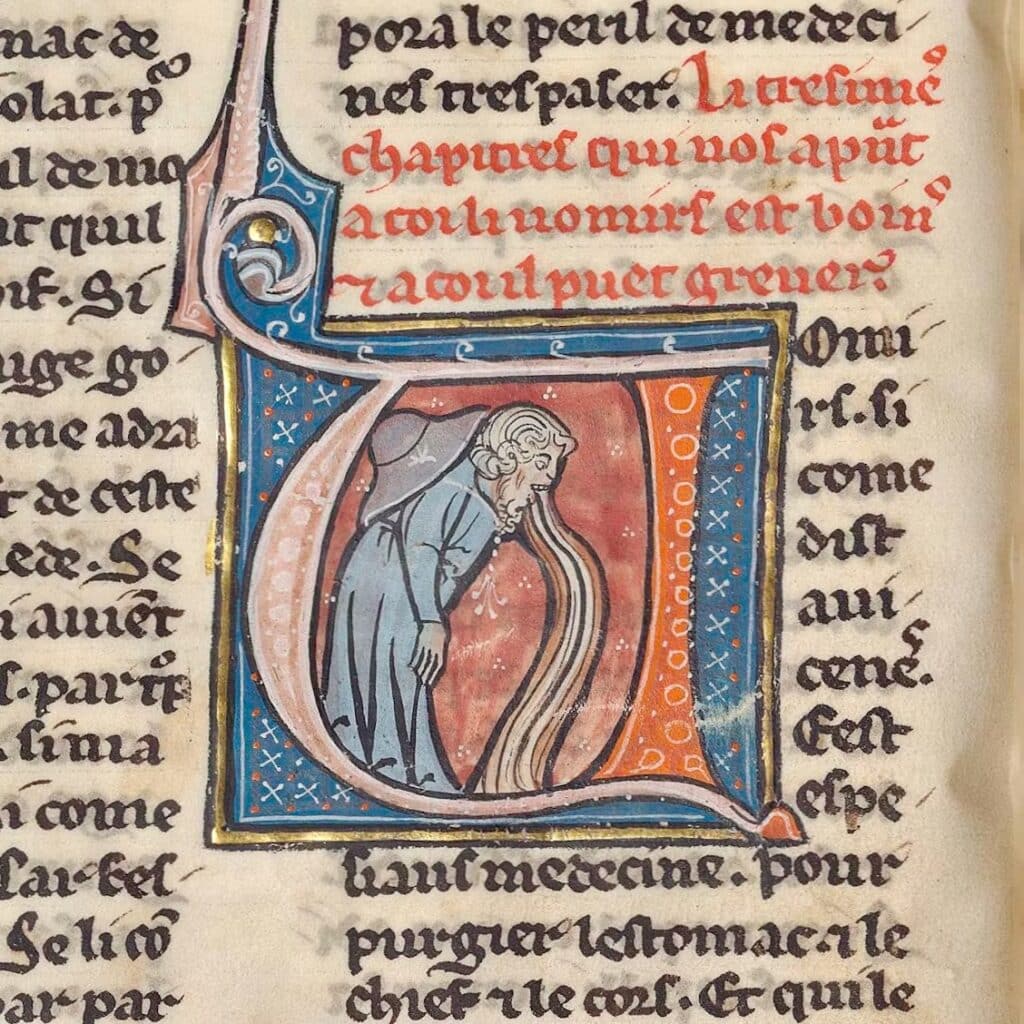 mac de
olat. p
il de mo
it quil
Si
uge go
me adra
t de ceste
ede. Se
i auiēt
s. par
. sinia
i come
sar
Se li cō
ar par
pora le peril de medeci-
nes trespaser. La tresimeᵒ
chapitres qui nos apn̄t
a coi li uomirs est boinᵒ
⁊ a coi il puet greuer.
UOmi-
rs. si
come
dist
aui-
ceneᵒ.
Cest
espe-
siaus medecine. pour
purgier lestomac. ⁊ le
chief ⁊ le cors. Et qui le